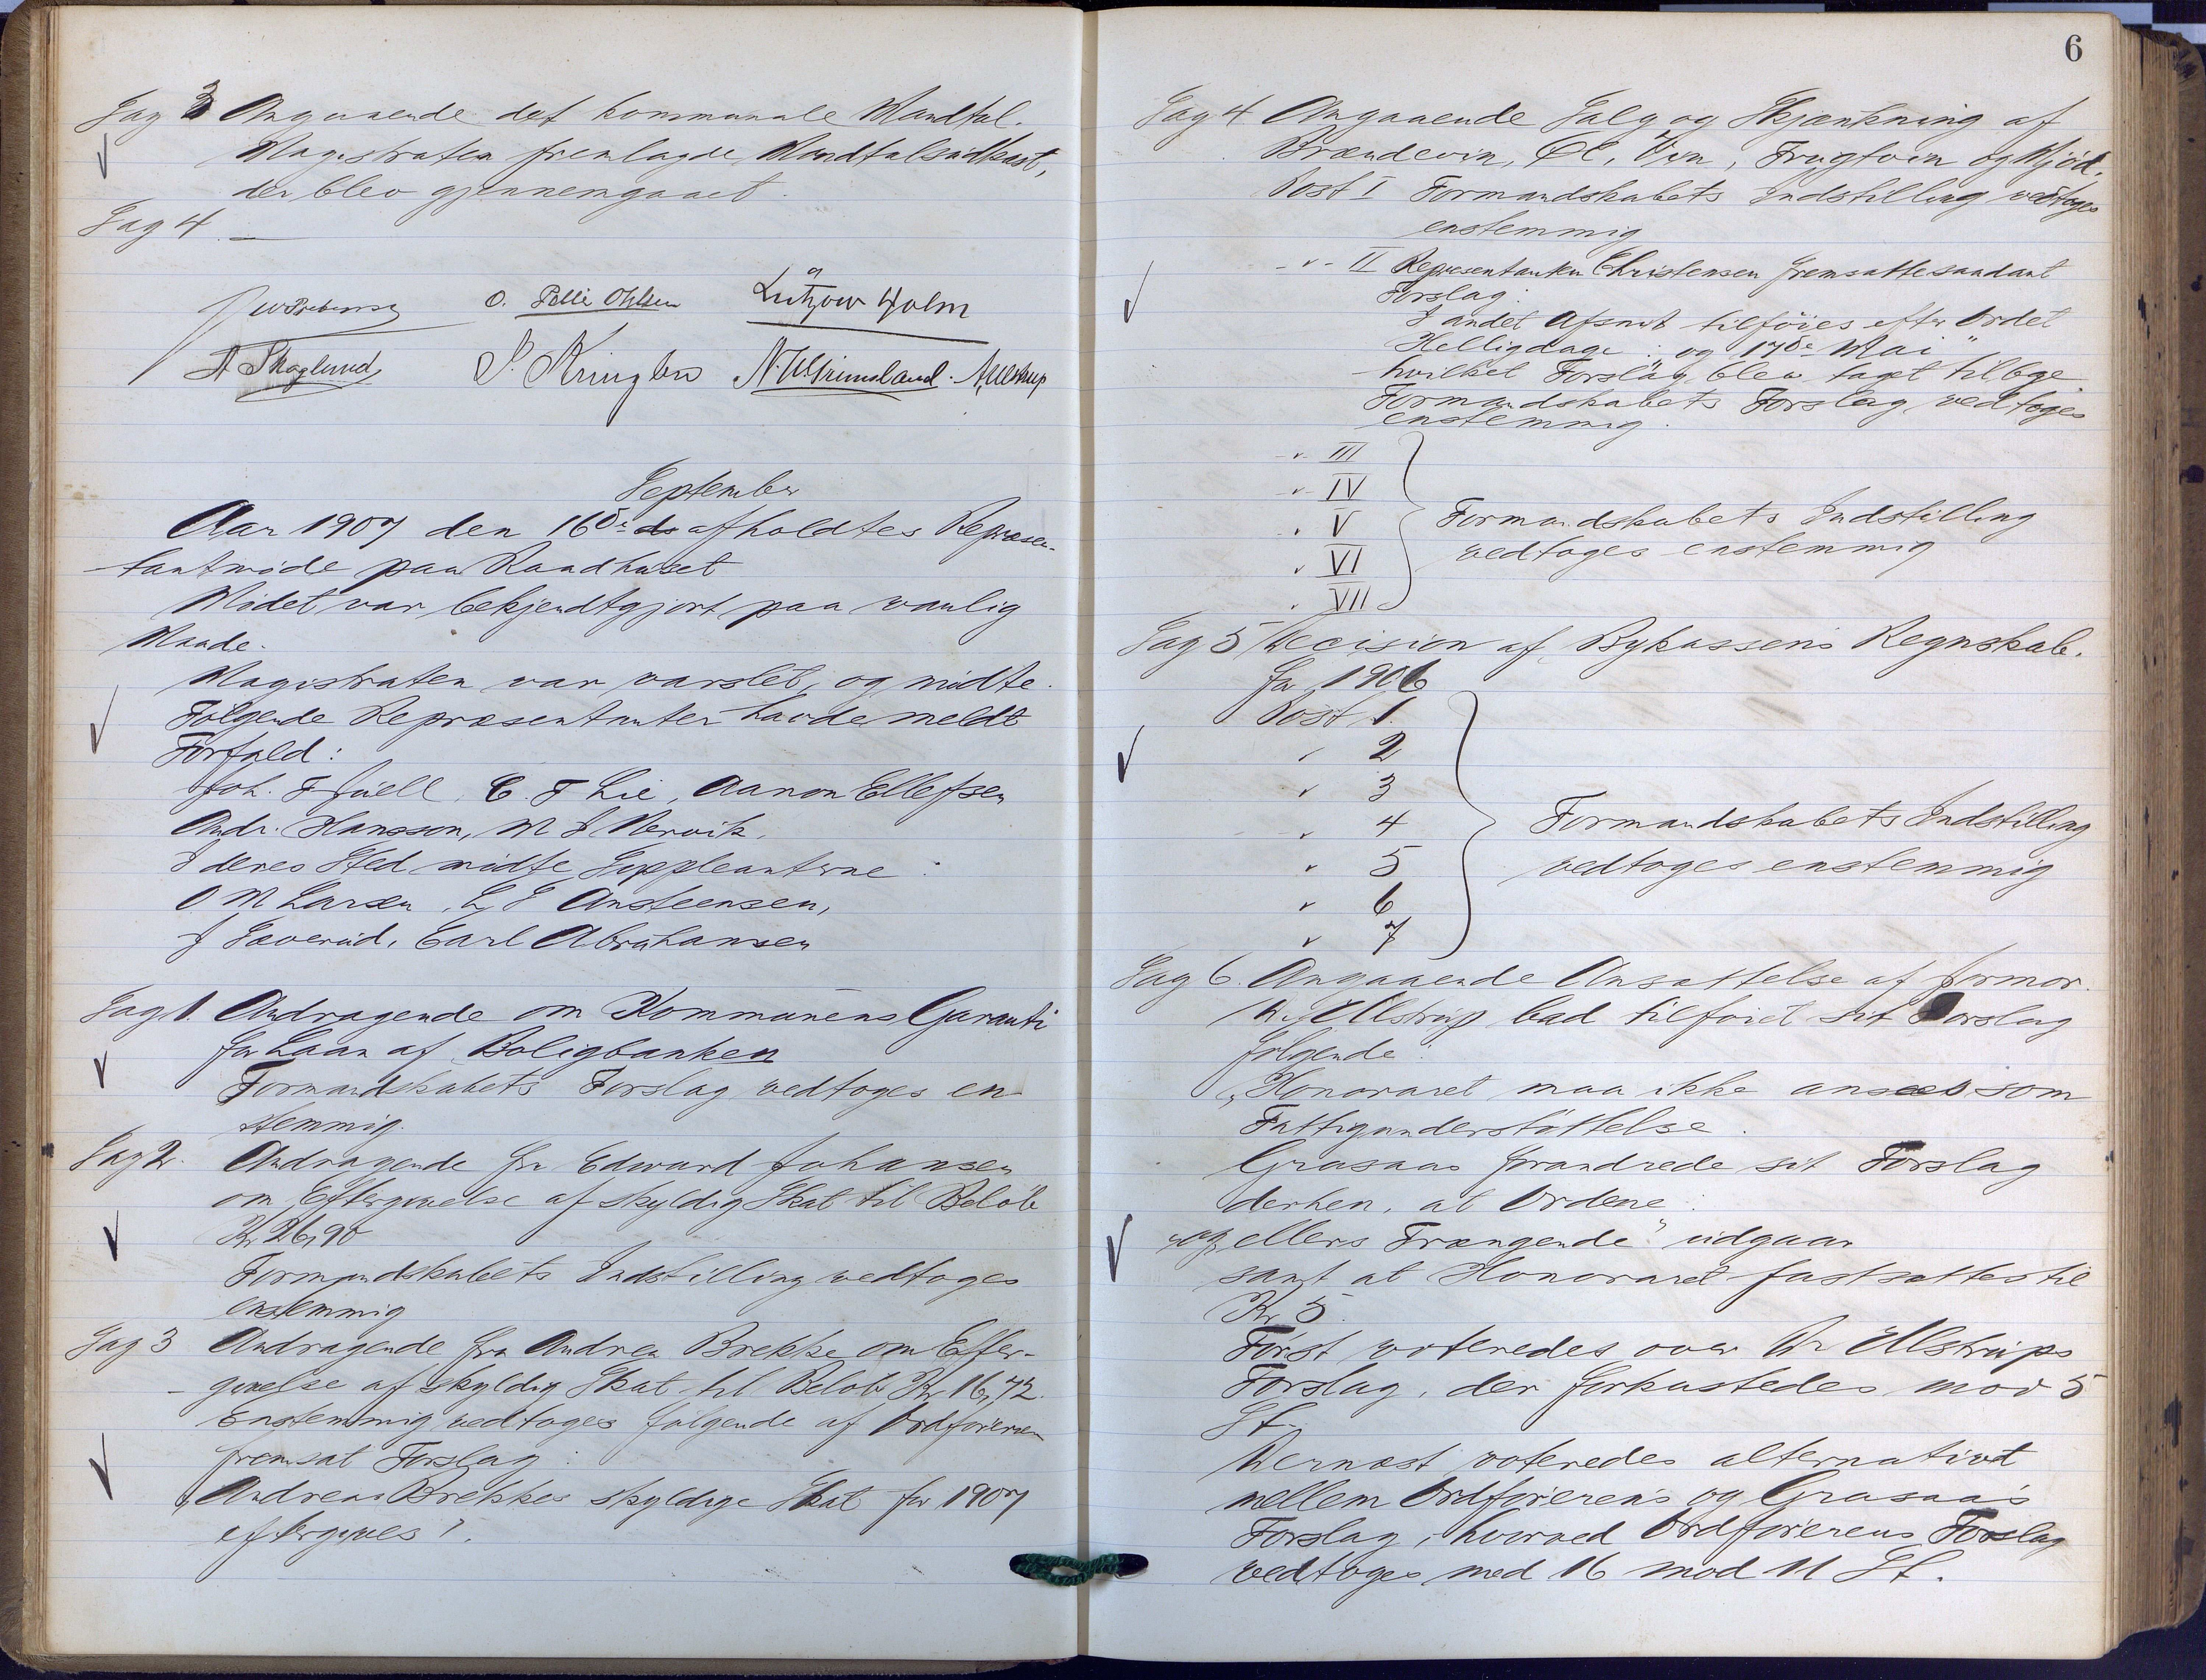 Sag 3 Angaaende det kommunale Mandtal.
Magistraten fremlagde Mandtalsudkast,
der blev gjennemgaaet.
Sag 4. —
O. Pelle Ohlsen Lützow Holm
A Skoglund S. Kringlen N. W. Grimsland. A Ullstrup
September
Aar 1907 den 16de afholdtes Repræsen-
tantmöde paa Raadhuset
Mödet var bekjendtgjort paa vanlig
Maade.
Magistraten var varslet, og mödte.
Fölgende Repræsentanter havde meldt
Forfald:
Joh. F Juell, C. F Lie, Aanon Ellefsen
Andr. Hansson, M J Nervik.
I deres Sted mödte Suppleanterne:
O M Larsen, L J Ansteensen,
J Severud, Carl Abrahamsen
Sag 1. Andragende om Kommunens Garanti
for Laan af Boligbanken
Formandskabets Forslag vedtoges en-
stemmig.
Sag 2. Andragende fra Edward Johansen
om Eftergivelse af skyldig Skat til Belöb
Kr 26,90
Formandskabets Indstilling vedtoges
enstemmig
Sag 3 Andragende fra Andrea Brekke om Efter-
givelse af skyldig Skat til Belöb Kr 16,72.
Enstemmig vedtoges fölgende af Ordföreren
fremsat Forslag:
„Andreas Brekkes skyldige Skat for 1907
eftergives".
6
Sag 4 Angaaende Salg og Skjænkning af
Brændevin, Öl, Vin, Frugtvin og Mjöd.
Post I Formandskabets Indstilling vedtoges
enstemmig
-"- II Repræsentanten Christensen fremsatte saadant
Forslag:
I andet Afsnit tilföies efter Ordet
Helligdage: „og 17de Mai"
hvilket Forslag blev taget tilbage
Formandskabets Forslag vedtoges
enstemmig.
-"- III
-"- IV
" V Formandskabets Indstilling
" VI vedtoges enstemmig
" VII
Sag 5 Decision af Bykassens Regnskab.
for 1906
Post 1.
" 2
" 3
" 4 Formandskabets Indstilling
" 5 vedtoges enstemmig
" 6
" 7
Sag 6. Angaaende Ansættelse af Jormor.
Dr. Ullstrup bad tilföiet sit Forslag
fölgende:
„Honoraret maa ikke ansees som
Fattigunderstöttelse.
Grasaas forandrede sit Forslag
derhen, at Ordene:
„og ellers Trængende" udgaar
samt at Honoraret fastsættes til
Kr 5.
Först voteredes over Dr Ullstrups
Forslag, der forkastedes mod 5
St.
Dernæst voteredes alternativt
mellem Ordförerens og Grasaas
Forslag, hvorved Ordförerens Forslag
vedtoges med 16 mod 11 St.